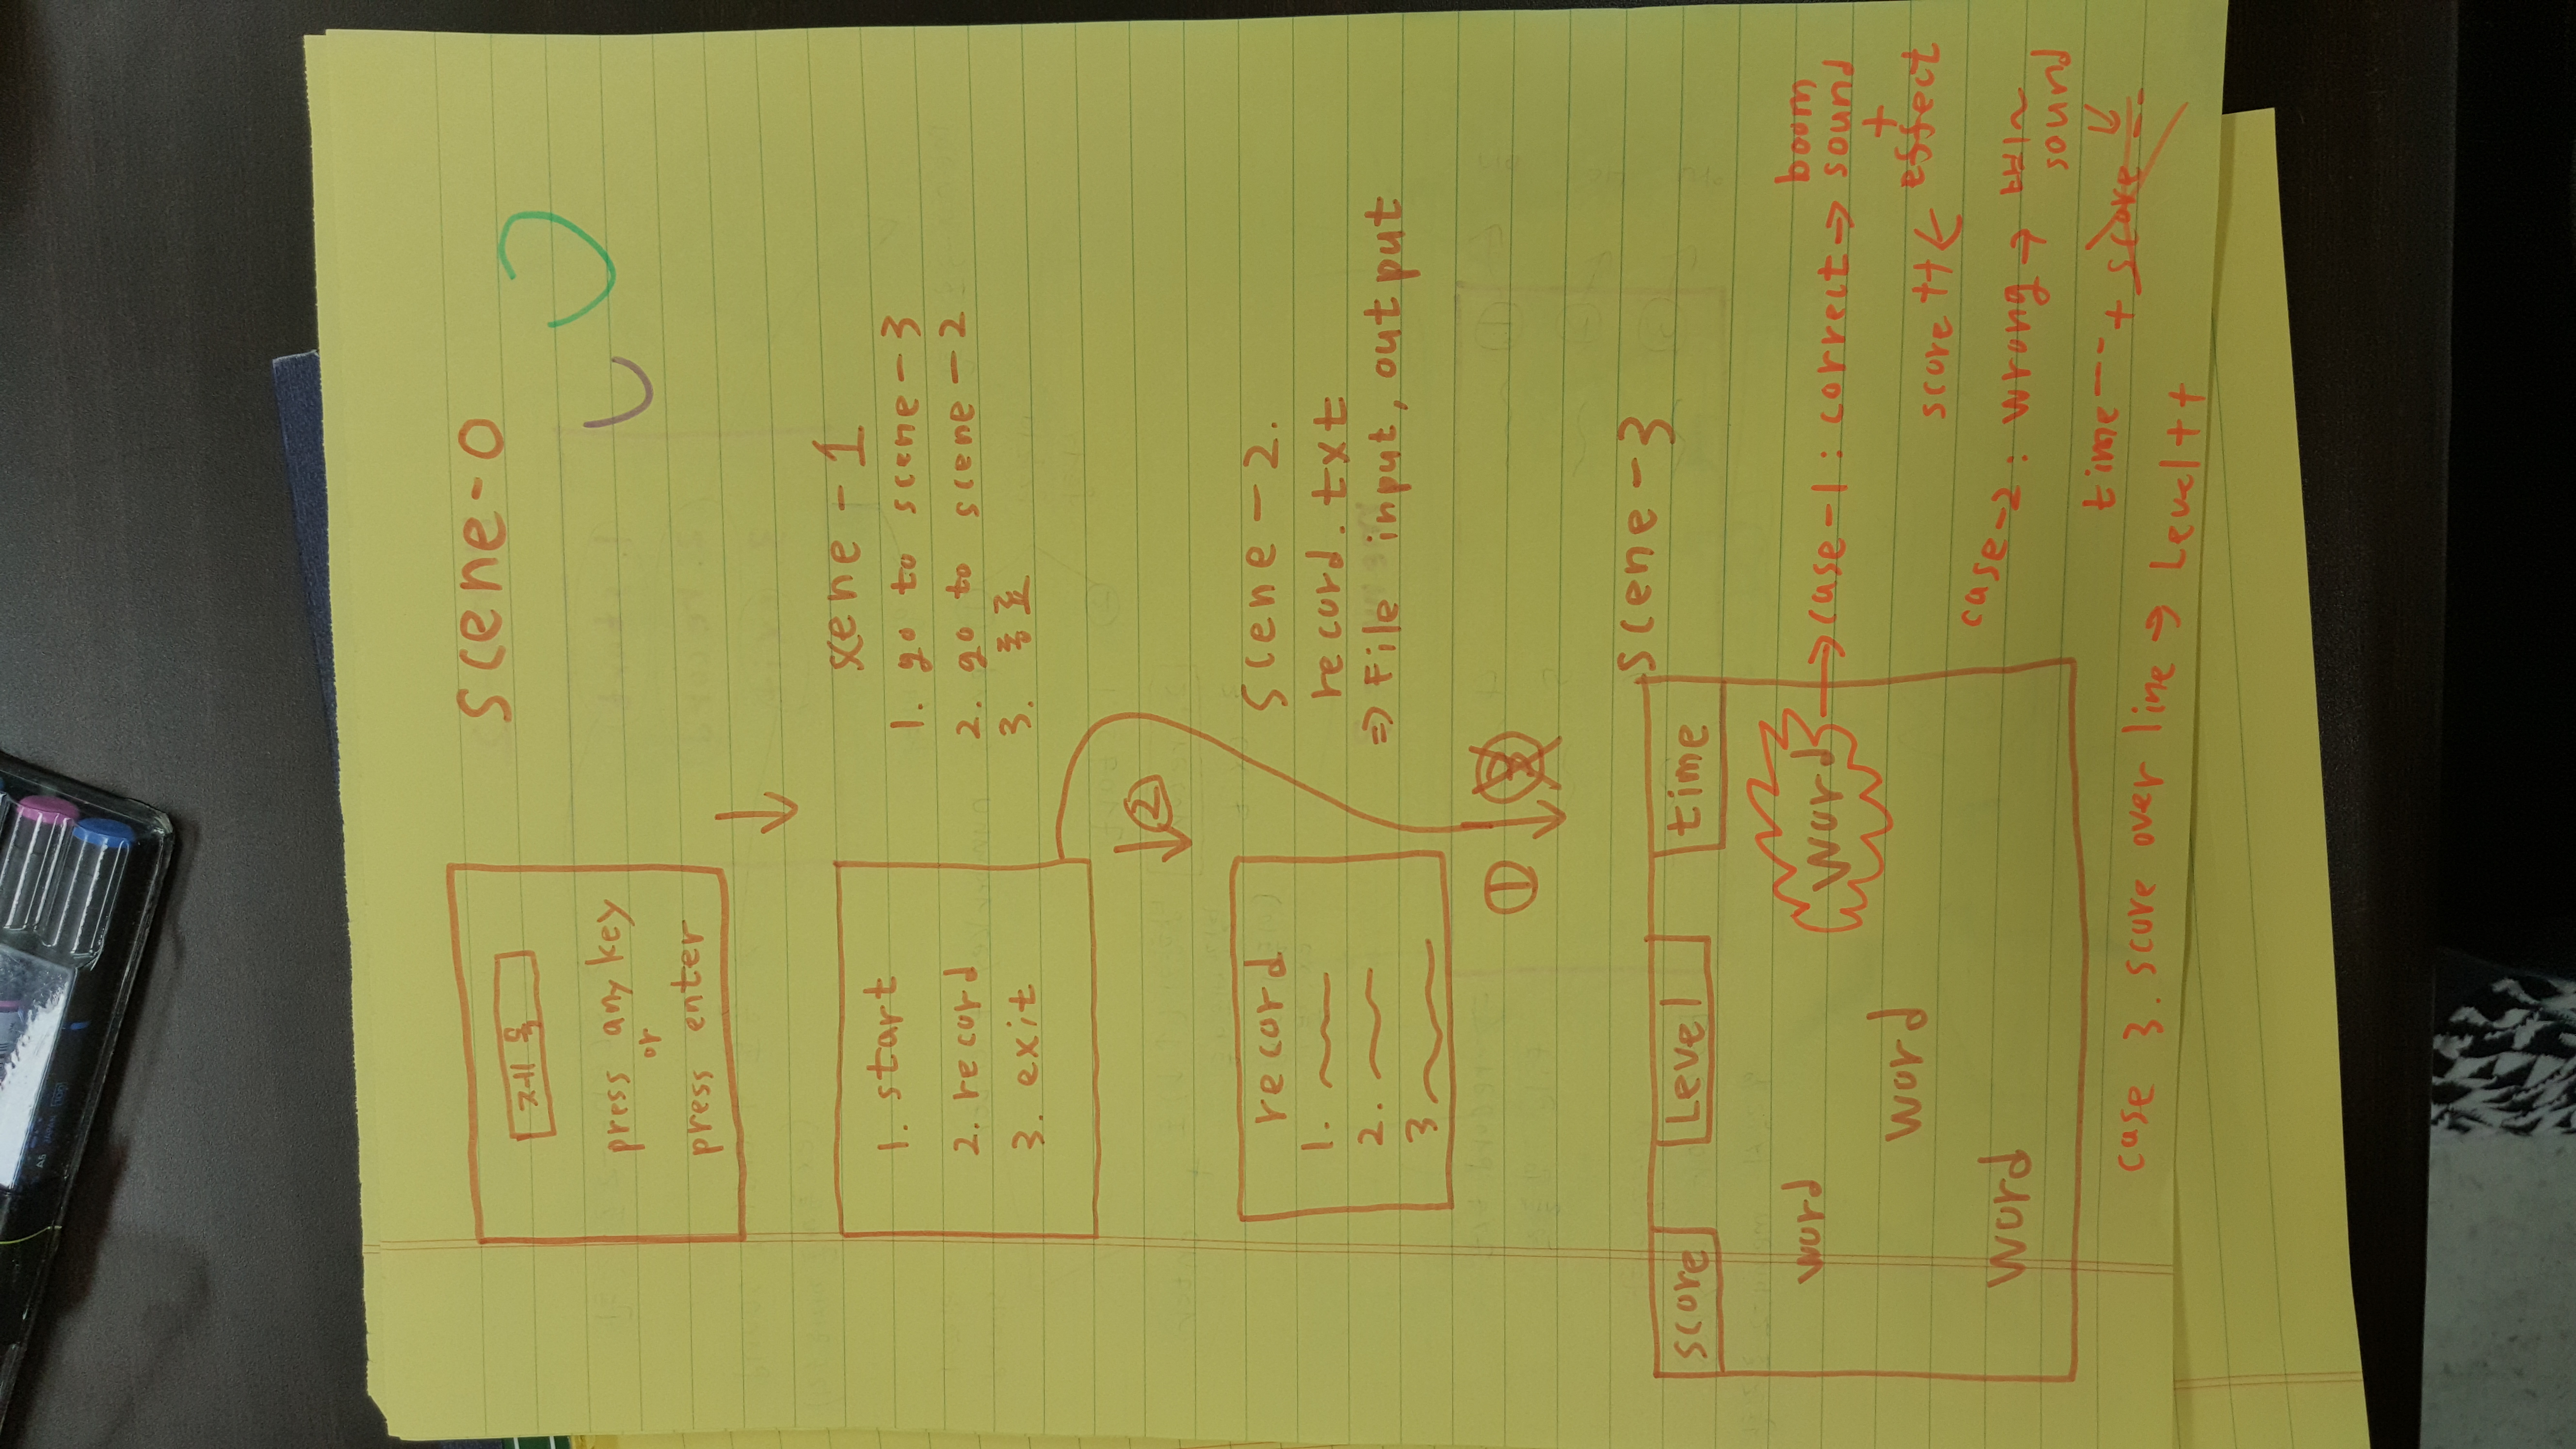 A5 JAPAN
scene-0
제목
press any key
or
press enter
scene-1
1. start
2. record
3. exit
1. go to scene-3
2. go to scene-2
3. 종료
②
record
1.
2.
3
scene-2.
record.txt
⇒ File input, output
①
scene-3
score
Level
time
word
word
word
word
→ case-1: correct → boom
sound
+
effect
score ++ ←
case-2: wrong → 삐~
sound
time -- + score --
case 3. score over line → Level++